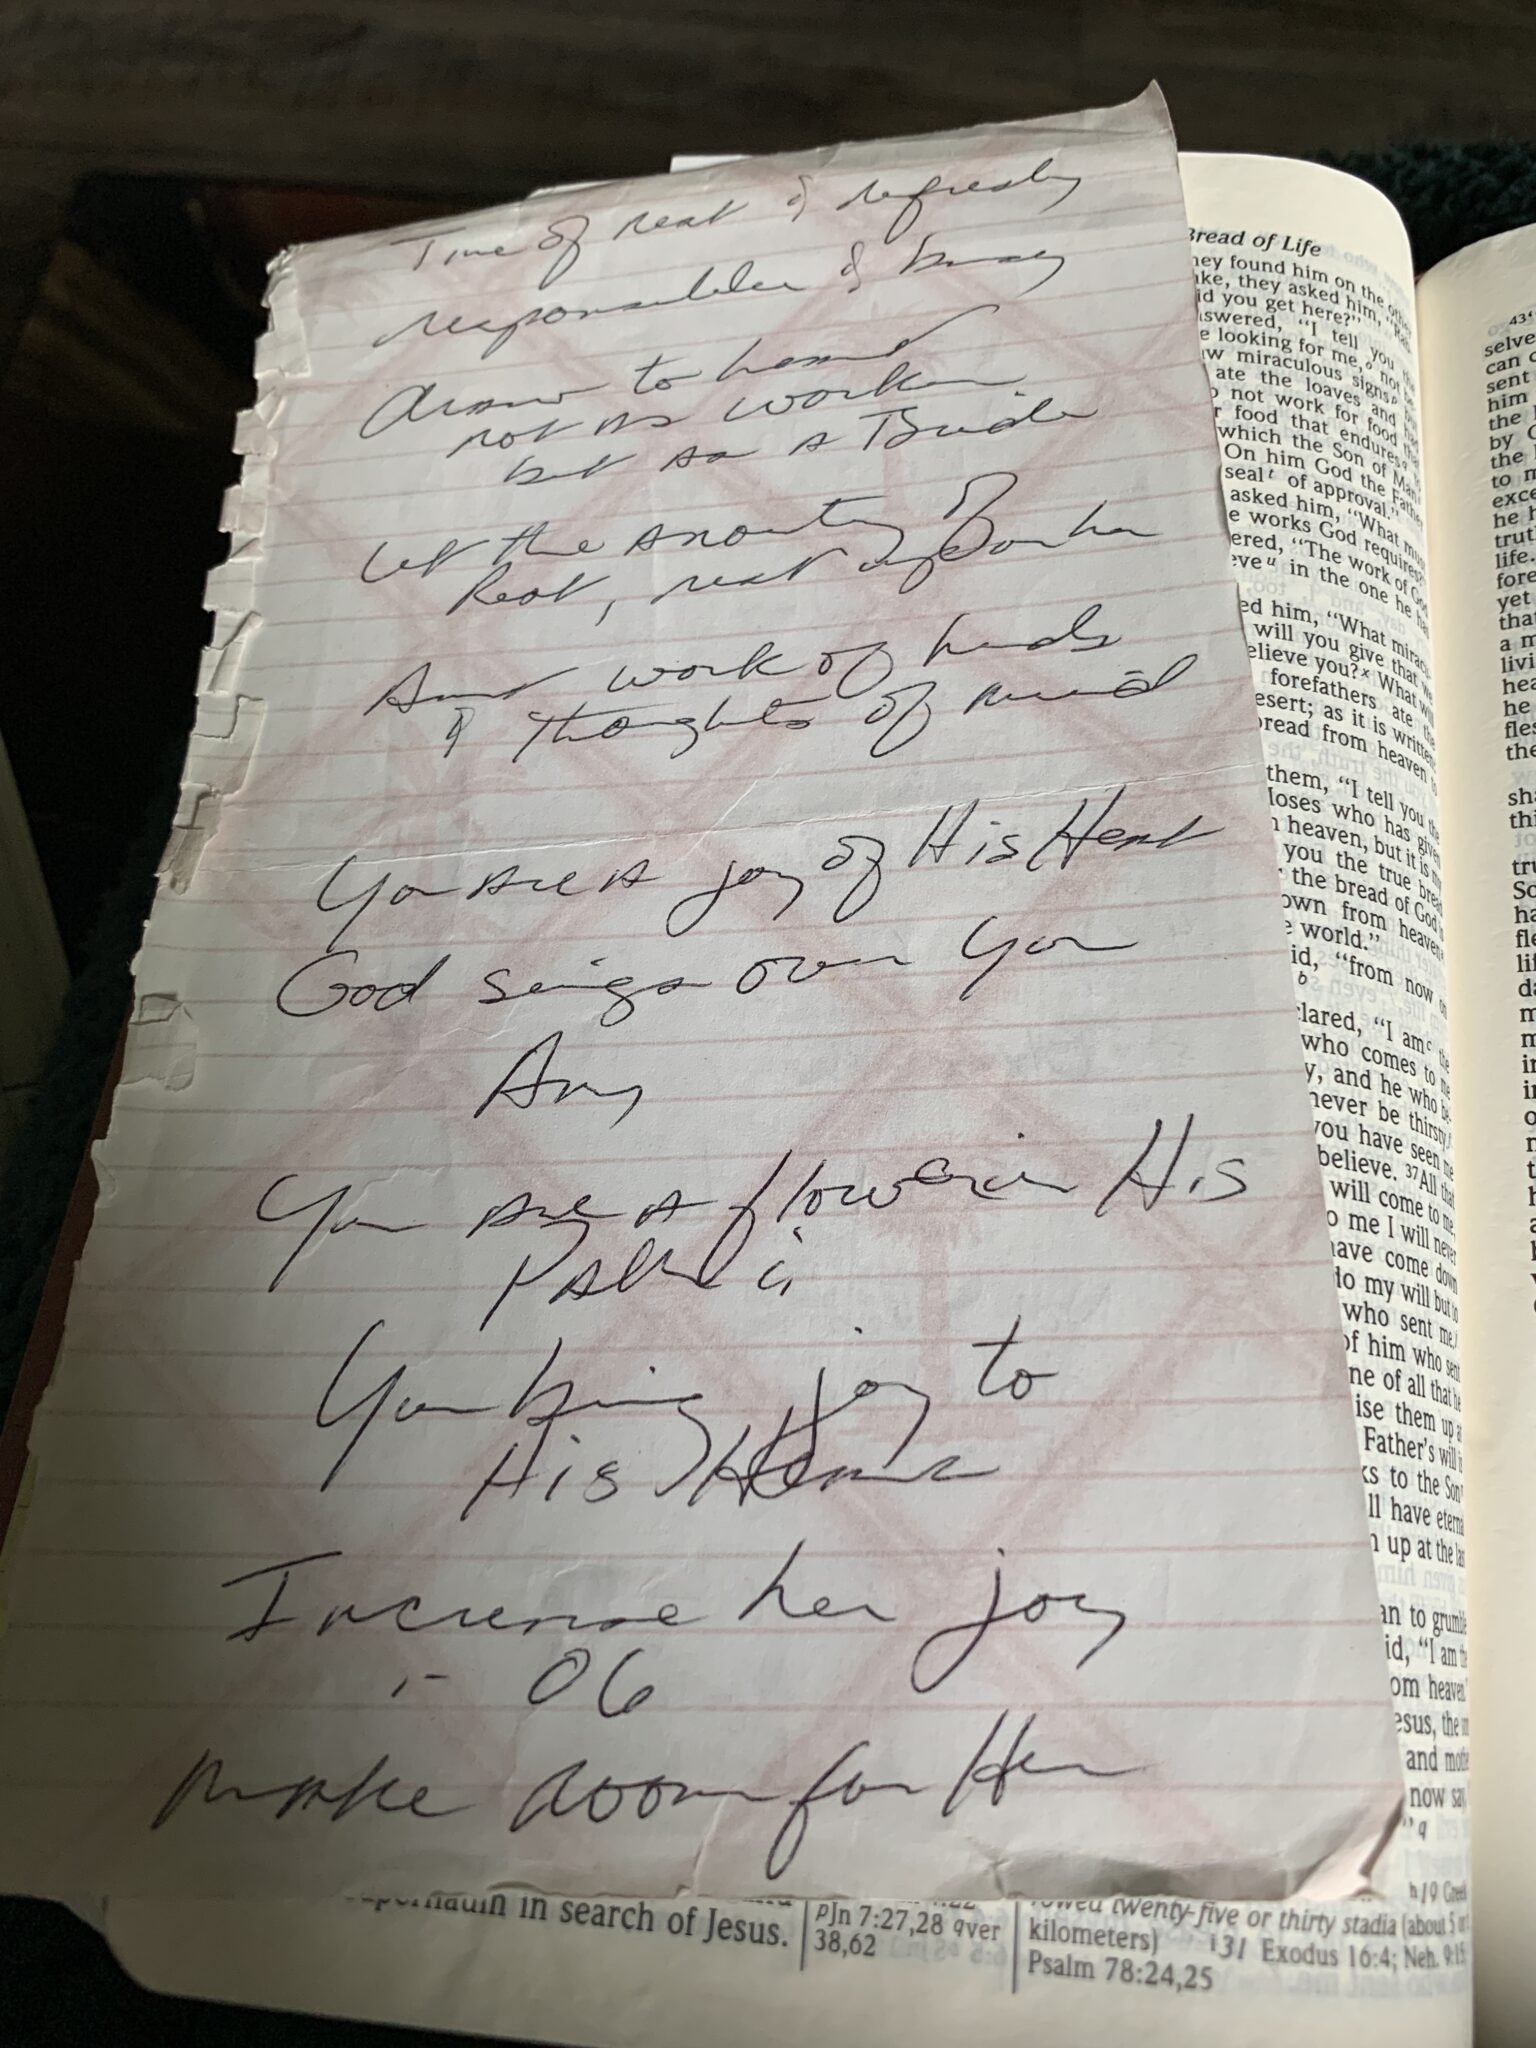 Time of rest & refreshing
responsibilities & busy
draw to
not as worker
but as a Bride
Let the anointing of
Rest, rest upon her
And work of hands
& thoughts of mind
You are a joy of His Heart
God sings over you
Amy
You are a flower in His
You bring joy to
His
Increase her joy
06
make room for Her
Bread of Life
hey found him on the other
ke, they asked him, "Rabbi
id you get here?"
nswered, "I tell you the
e looking for me, not be
w miraculous signs but
ate the loaves and had
o not work for food that
r food that endures to
which the Son of Man
On him God the Father
seal of approval."
asked him, "What must
e works God requires?"
ered, "The work of God
eve in the one he has
ed him, "What mirac
will you give that we
elieve you? What will
forefathers ate the
esert; as it is written:
bread from heaven to
them, "I tell you the
Moses who has given
n heaven, but it is my
you the true bread
the bread of God is
own from heaven
e world."
id, "from now on
b
clared, "I am the
who comes to me
y, and he who be
never be thirsty.
you have seen me
believe. 37All that
will come to me,
o me I will never
have come down
do my will but to
who sent me.
of him who sent
ne of all that he
ise them up at
Father's will is
ks to the Son
ll have eterna
n up at the las
an to grumble
id, "I am the
om heaven."
esus, the
and mothe
now say,
" q
h19 Greek
rowed twenty-five or thirty stadia (about 5 or
kilometers) i31 Exodus 16:4; Neh. 9:15
Psalm 78:24,25
pernaum in search of Jesus.
pJn 7:27,28 qver
38,62
43"
selve
can c
sent
him
the
by
the
to m
exce
he h
trut
life.
fore
yet
that
a m
livi
hea
he
fles
the
sha
thi
tru
So
ha
fle
lif
da